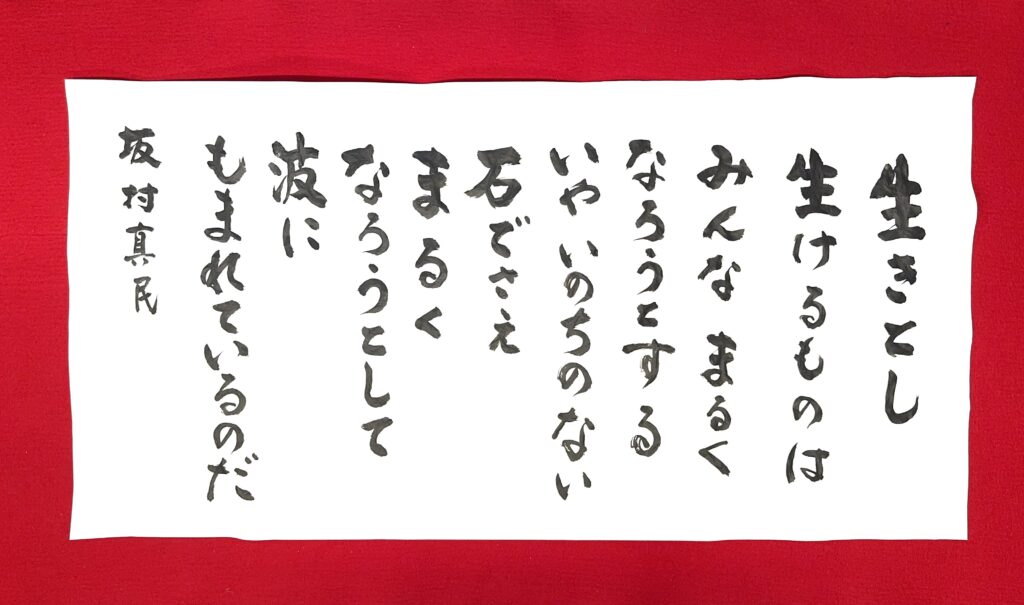 生きとし
生けるものは
みんな まるく
なろうとする
いや いのちのない
石でさえ
まるく
なろうとして
波に
もまれているのだ
坂村真民